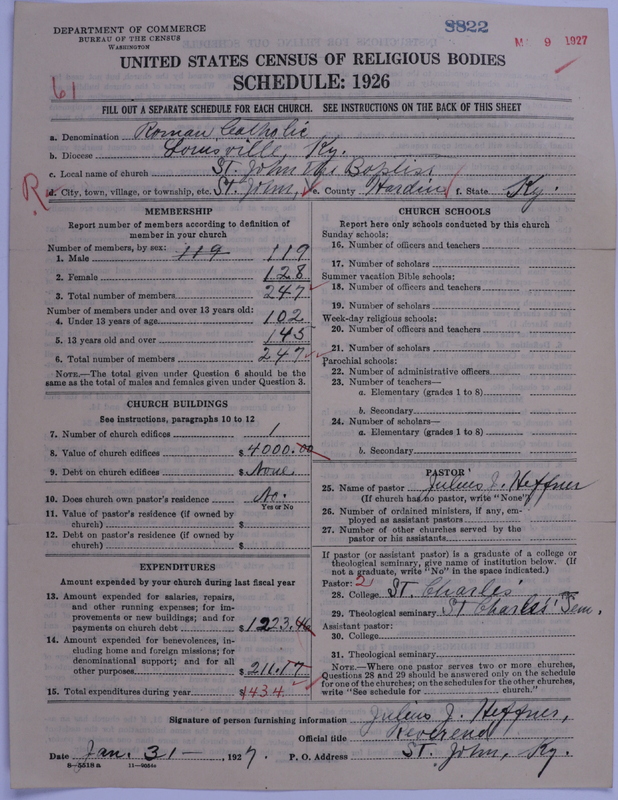 8822
DEPARTMENT OF COMMERCE
BUREAU OF THE CENSUS
WASHINGTON
9 1927
UNITED STATES CENSUS OF RELIGIOUS BODIES
SCHEDULE: 1926
61
FILL OUT A SEPARATE SCHEDULE FOR EACH CHURCH. SEE INSTRUCTIONS ON THE BACK OF THIS SHEET
a. Denomination Roman Catholic
b. Diocese Louisville, Ky.
c. Local name of church St. John the Baptist
R
d. City, town, village, or township, etc. St. John, e. County Hardin f. State Ky.
MEMBERSHIP
Report number of members according to definition of
member in your church
Number of members, by sex:
1. Male 119 119
2. Female 128
3. Total number of members 247
Number of members under and over 13 years old:
4. Under 13 years of age 102
5. 13 years old and over 145
6. Total number of members 247
NOTE.—The total given under Question 6 should be
same as the total of males and females given under Question 3.
CHURCH BUILDINGS
See instructions, paragraphs 10 to 12
7. Number of church edifices 1
8. Value of church edifices $ 4000.00
9. Debt on church edifices $ None
10. Does church own pastor's residence No.
Yes or No
11. Value of pastor's residence (if owned by
church) $
12. Debt on pastor's residence (if owned by
church) $
EXPENDITURES
Amount expended by your church during last fiscal year
13. Amount expended for salaries, repairs,
and other running expenses; for im-
provements or new buildings; and for
payments on church debt $ 1223.46
14. Amount expended for benevolences, in-
cluding home and foreign missions; for
denominational support; and for all
other purposes $ 211.17
15. Total expenditures during year $1434.
CHURCH SCHOOLS
Report here only schools conducted by this church
Sunday schools:
16. Number of officers and teachers
17. Number of scholars
Summer vacation Bible schools:
18. Number of officers and teachers
19. Number of scholars
Week-day religious schools:
20. Number of officers and teachers
21. Number of scholars
Parochial schools:
22. Number of administrative officers
23. Number of teachers—
a. Elementary (grades 1 to 8)
b. Secondary
24. Number of scholars—
a. Elementary (grades 1 to 8)
b. Secondary
PASTOR
25. Name of pastor Julius J. Heffner
(If church has no pastor, write "None")
26. Number of ordained ministers, if any, em-
ployed as assistant pastors
27. Number of other churches served by the
pastor or his assistants
If pastor (or assistant pastor) is a graduate of a college or
theological seminary, give name of institution below. (If
not a graduate, write "No" in the space indicated.)
Pastor: 2
28. College St. Charles'
29. Theological seminary St Charles' Sem.
Assistant pastor:
30. College
31. Theological seminary
NOTE.—Where one pastor serves two or more churches,
Questions 28 and 29 should be answered only on the schedule
for one of the churches; on the schedules for the other churches,
write "See schedule for church."
Signature of person furnishing information Julius J. Heffner,
Official title Reverend
Date Jan. 31 — , 1927. P. O. Address St. John, Ky.
8—5518a